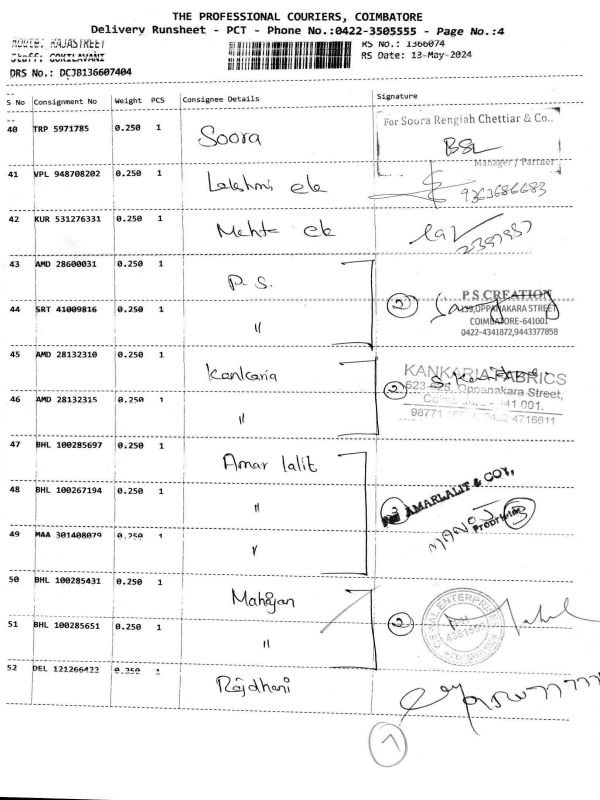 THE PROFESSIONAL COURIERS, COIMBATORE
Delivery Runsheet - PCT - Phone No.:0422-3505555 - Page No.:4
Route: RAJASTREET
RS No.: 1366074
Staff: GOKILAVANI
RS Date: 13-May-2024
DRS No.: DCJB136607404
S No Consignment No Weight PCS Consignee Details Signature
40 TRP 5971785 0.250 1 Soora
For Soora Rengiah Chettiar & Co.,
Manager / Partner
41 VPL 948708202 0.250 1 Lakshmi ele
9363686683
42 KUR 531276331 0.250 1 Mehta ele
43 AMD 28600031 0.250 1 P. S.
2
P.S CREATION
139,OPPANAKARA STREET
COIMBATORE-641001
0422-4341872,9443377858
44 SRT 41009816 0.250 1 "
45 AMD 28132310 0.250 1 Kankaria
2
KANKARIA FABRICS
623-625, Oppanakara Street,
641 001.
98771 4716611
46 AMD 28132315 0.250 1 "
47 BHL 100285697 0.250 1 Amar lalit
AMARLALIT & COY,
MANOJ
Proprietor
3
48 BHL 100267194 0.250 1 "
49 MAA 301408079 0.250 1 "
50 BHL 100285431 0.250 1 Mahajan
2
51 BHL 100285651 0.250 1 "
52 DEL 121266422 0.250 1 Rajdhani
7